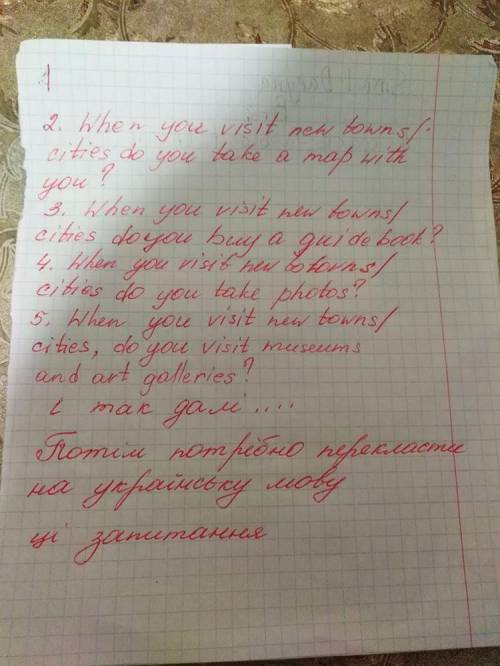 1
2. When you visit new towns/
cities do you take a map with
you?
3. When you visit new towns/
cities do you buy a guidebook?
4. When you visit new towns/
cities do you take photos?
5. When you visit new towns/
cities, do you visit museums
and art galleries?
і так далі ....
Потім потрібно перекласти
на українську мову
ці запитання